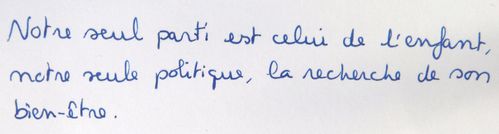 Notre seul parti est celui de l'enfant,
notre seule politique, la recherche de son
bien-être.